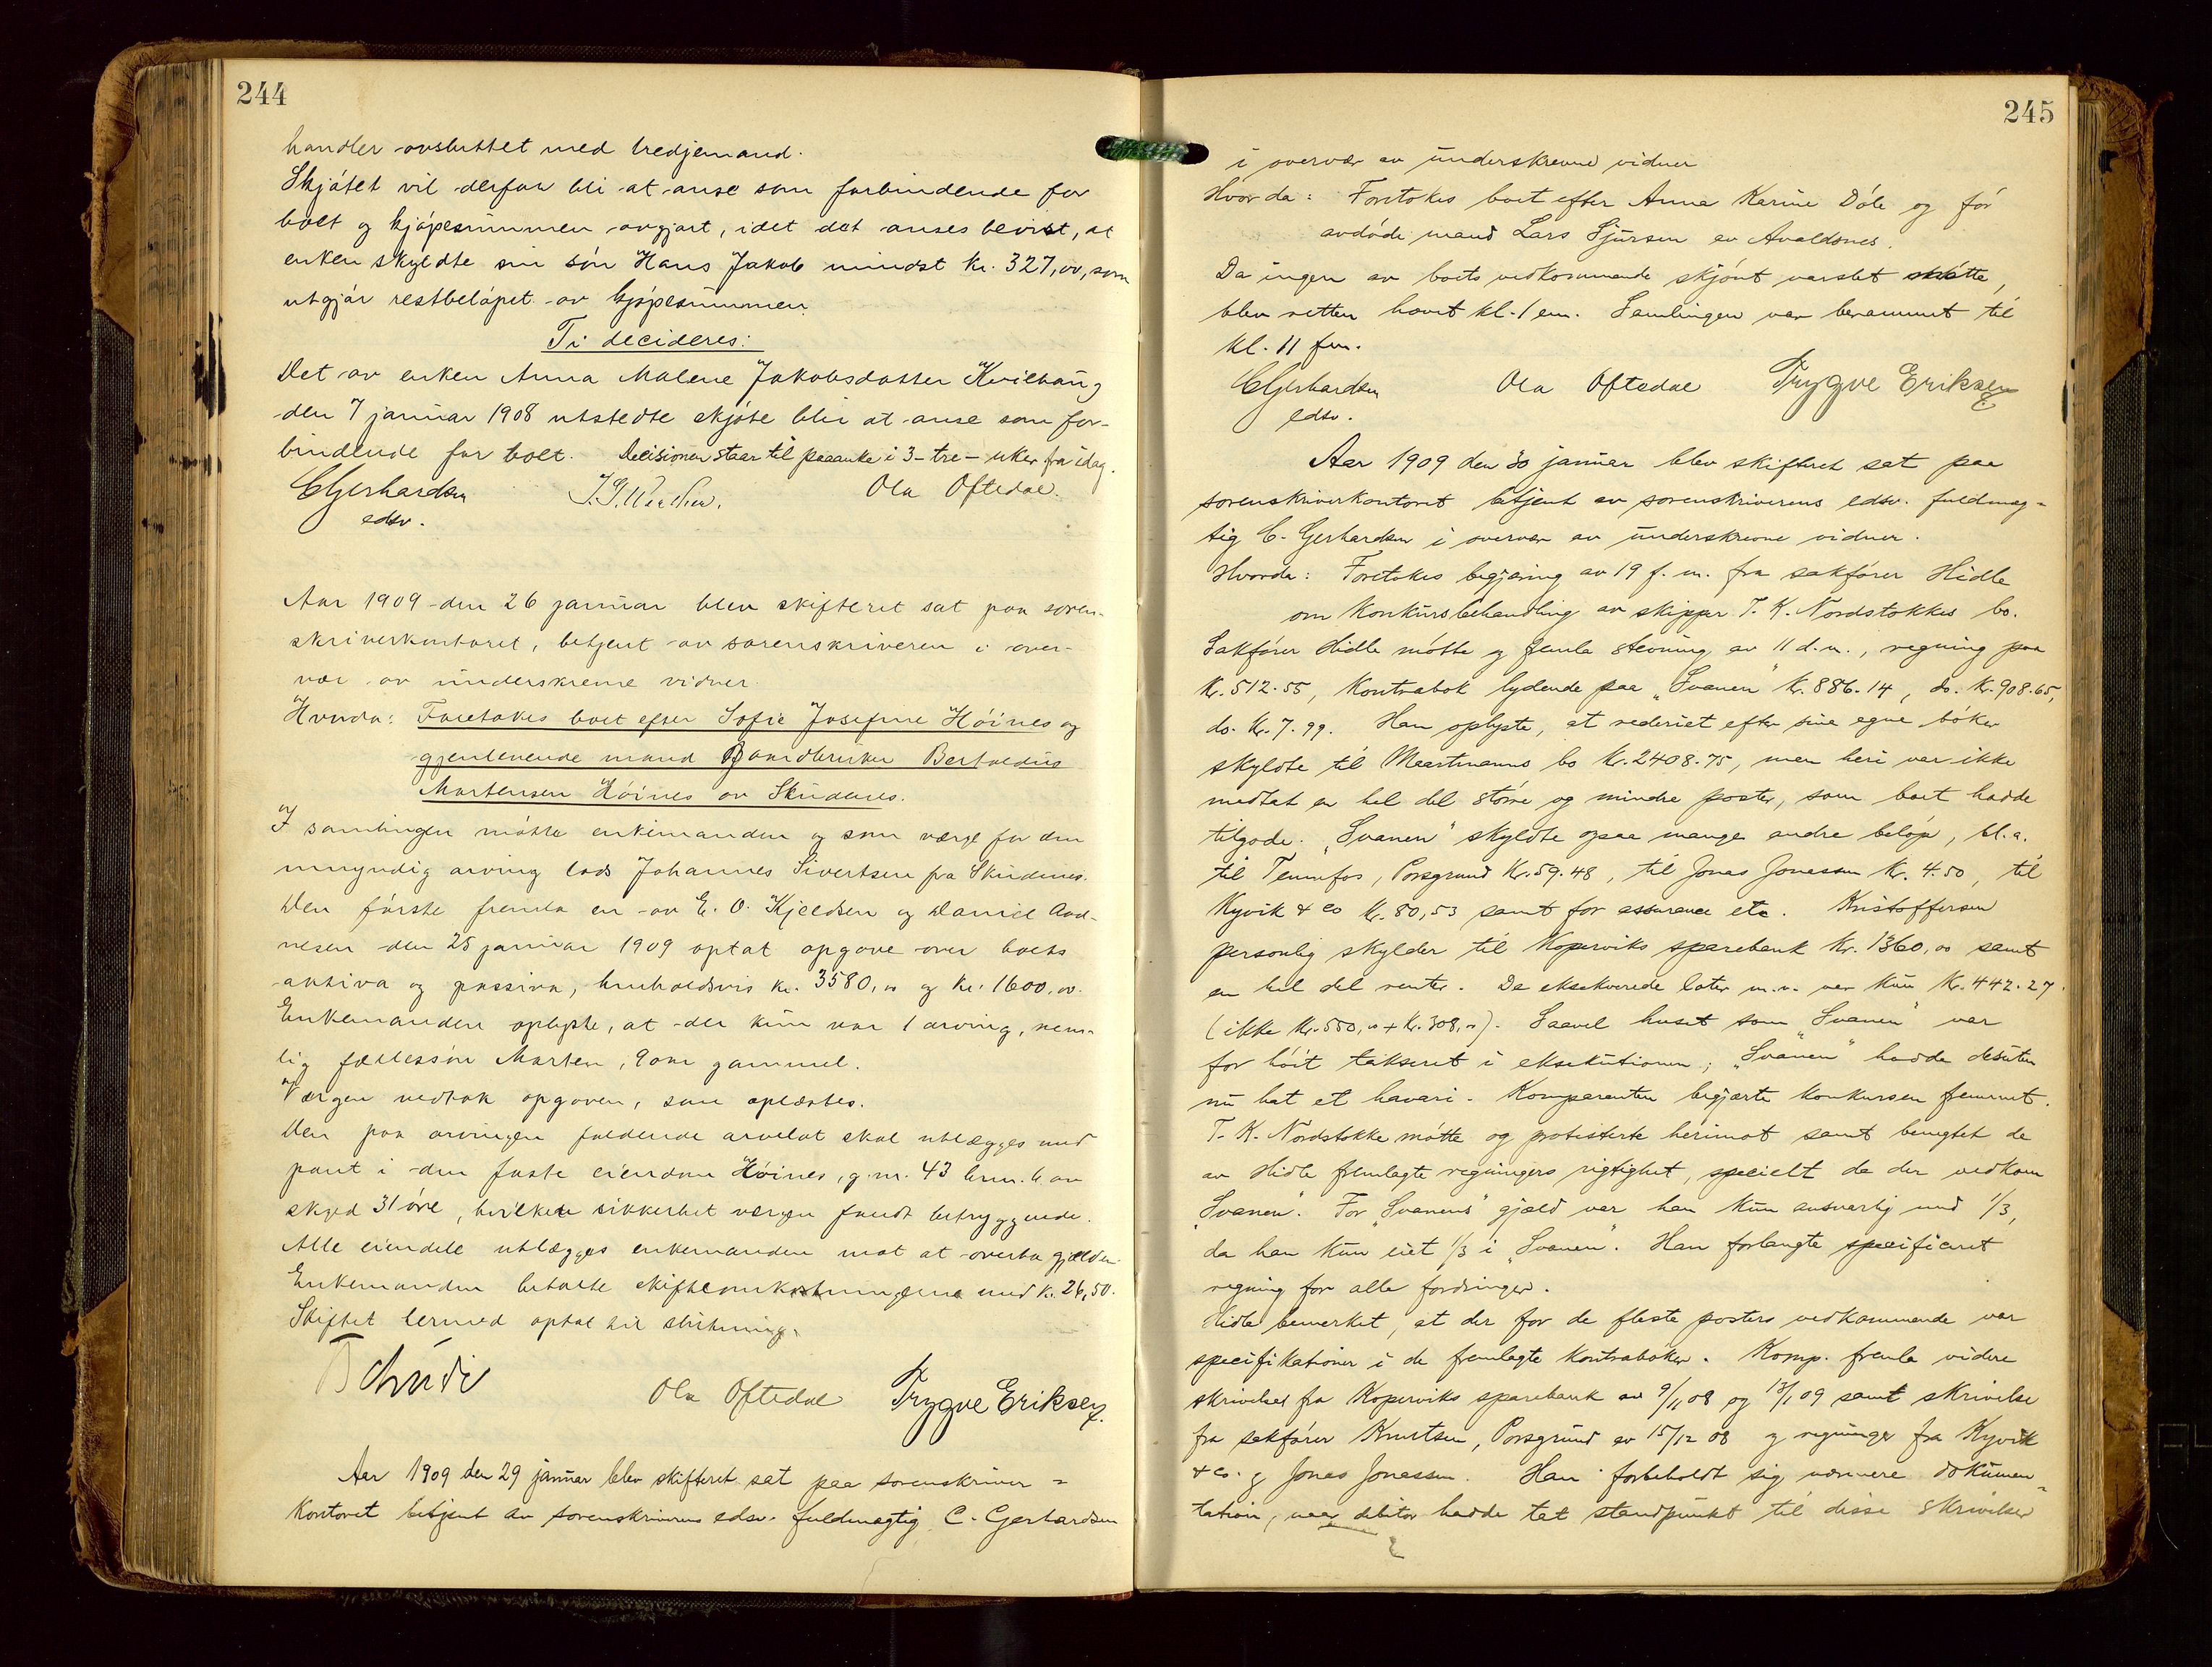 244
handler avsluttet med tredjemand.
Skjötet vil derfor bli at anse som forbindende for
boet og kjöpesummen avgjort, idet det anses bevist, at
enken skyldte sin sön Hans Jakob mindst kr. 327,00, som
utgjör restbelöpet av kjöpesummen.
Ti decideres:
Det av enken Anna Malene Jakobsdatter Kvilhaug
den 7 januar 1908 utstedte skjöte blir at anse som for-
bindende for boet. Decisionen staar til paaanke i 3 - tre - uker fra idag.
CGerhardsen Ola Oftedal.
edsv.
Aar 1909 den 26 januar blev skifteret sat paa soren-
skriverkontoret, betjent av sorenskriveren i over-
vær av underskrevne vidner.
Hvorda: Foretokes boet efter Sofie Josefine Höines og
gjenlevende mand Gaardbruker Bertoldus
Mortensen Höines av Skudenes.
I samlingen mötte enkemanden og som værge for den
umyndig arving lods Johannes Sivertsen fra Skudenes.
Den förste fremla en av E. O. Kjeldsen og Daniel Aad-
nesen den 25 januar 1909 optat opgave over boets
aktiva og passiva, henholdsvis kr. 3580,00 og kr. 1600,00.
Enkemanden oplyste, at der kun var 1 arving, nem-
lig fællessön Morten, 9 aar gammel.
Værgen vedtok opgaven, som oplæstes.
Den paa arvingen faldende arvelot skal utlægges med
pant i den faste eiendom Höines, g.nr. 43 br.nr. 6 av
skyld 31 öre, hvilken sikkerhet værgen fandt betryggende.
Alle eiendele utlægges enkemanden mot at overta gjælden.
Enkemanden betalte skifteomkostningerne med kr. 26,50.
Skiftet hermed optat til slutning.
Ola Oftedal Trygve Eriksen
Aar 1909 den 29 januar blev skifteret sat paa sorenskriver=
kontoret betjent av sorenskriverens edsv. fuldmægtig C. Gerhardsen
245
i overvær av underskrevne vidner
Hvorda: Foretokes boet efter Anna Karine Döle og för
avdöde mand Lars Sjursen av Avaldsnes.
Da ingen av boets vedkommende skjönt varslet mötte,
blev retten hævet kl. 1 em. Samlingen var berammet til
kl. 11 fm.
CGerhardsen Ola Oftedal Trygve Eriksen
edsv.
Aar 1909 den 30 januar blev skifteret sat paa
sorenskriverkontoret betjent av sorenskriverens edsv. fuldmæg=
tig C. Gerhardsen i overvær av underskrevne vidner.
Hvorda: Foretokes begjæring av 19 f. m. fra sakförer Hidle
om konkursbehandling av skipper T. K. Nordstokkes bo.
Sakförer Hidle mötte og fremla stevning av 11 d. m., regning paa
Kr. 512.55, kontrabok lydende paa „Svanen" Kr. 886.14, do. Kr. 908.65,
do. Kr. 7.99. Han oplyste, at rederiet efter sine egne böker
skyldte til Meastmanns bo Kr. 2408.75, men heri var ikke
medtat en hel del större og mindre poster, som boet hadde
tilgode. „Svanen" skyldte ogsaa mange andre belöp, bl. a.
til Tennfos, Porsgrund Kr. 59.48, til Jonas Jonassen Kr. 4.50, til
Kyvik & co Kr. 80,53 samt for assurance etc. Kristoffersen
personlig skylder til Kopervik sparebank Kr. 1360,00 samt
en hel del renter. De eksekverede löter m. v. var kun Kr. 442.27.
(ikke Kr. 550,00 + Kr. 308,00). Saavel huset som „Svanen" var
for höit takseret i eksekutionen; „Svanen" hadde desuten
nu hat et havari. Komparenten begjærte konkursen fremmet.
T. K. Nordstokke mötte og protesterte herimot samt benegtet de
av Hidle fremlagte regningers rigtighet, specielt da der vedkom
„Svanen". For „Svanens" gjæld var han kun ansvarlig med 1/3,
da han kun eiet 1/3 i „Svanen". Han forlangte specificeret
regning for alle fordringer.
Hidle bemerket, at der for de fleste posters vedkommende var
specifikationer i de fremlagte kontraböker. Komp. fremla videre
skrivelser fra Koperviks sparebank av 9/11 08 og 13/1 09 samt skrivelse
fra sakförer Knutsen, Porsgrund av 15/12 08 og regninger fra Kyvik
& co. og Jonas Jonassen. Han forbeholdt sig nærmere dokumen=
tation, naar debitor hadde tat standpunkt til disse skrivelser